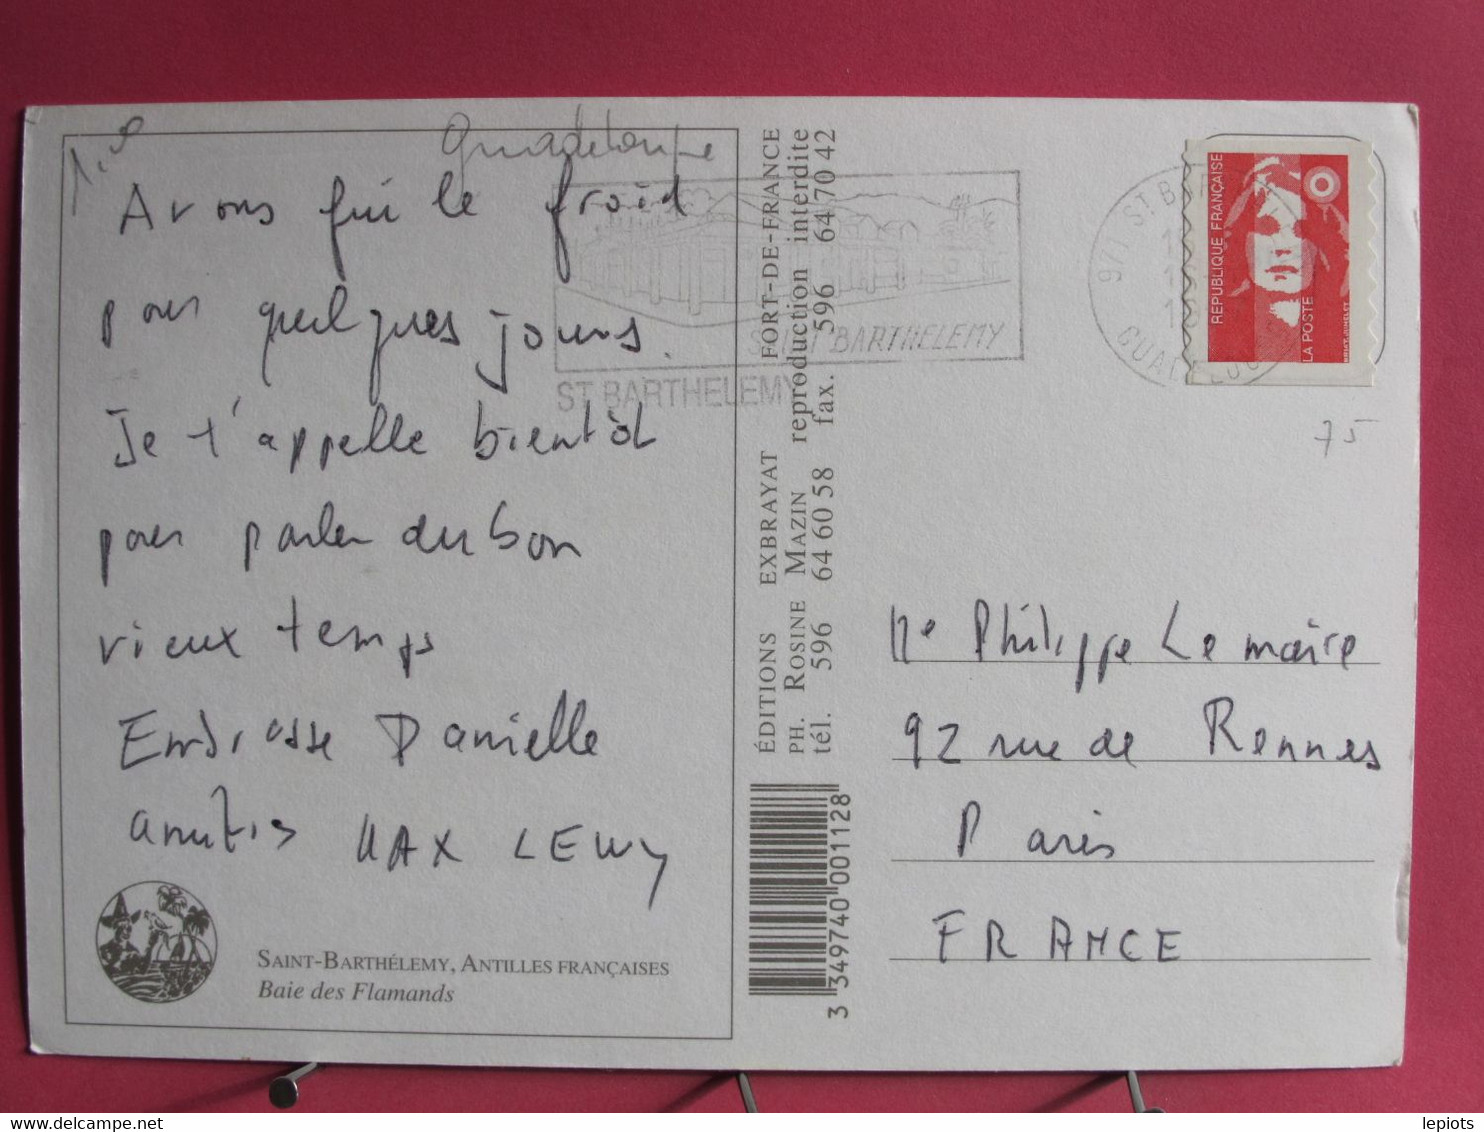 Guadeloupe
Avons fui le froid
pour quelques jours.
Je t'appelle bientôt
pour parler du bon
vieux temps
Embrasse Danielle
amitiés MAX LEWY
SAINT-BARTHÉLEMY, ANTILLES FRANÇAISES
Baie des Flamands
SAINT BARTHELEMY
ST BARTHELEMY
ÉDITIONS EXBRAYAT FORT-DE-FRANCE
PH. ROSINE MAZIN reproduction interdite
tél. 596 64 60 58 fax. 596 64 70 42
3 349740 001128
971 ST BART
GUADELOU
REPUBLIQUE FRANÇAISE
LA POSTE
75
Me Philippe Lemaire
92 rue de Rennes
Paris
FRANCE
lepiots